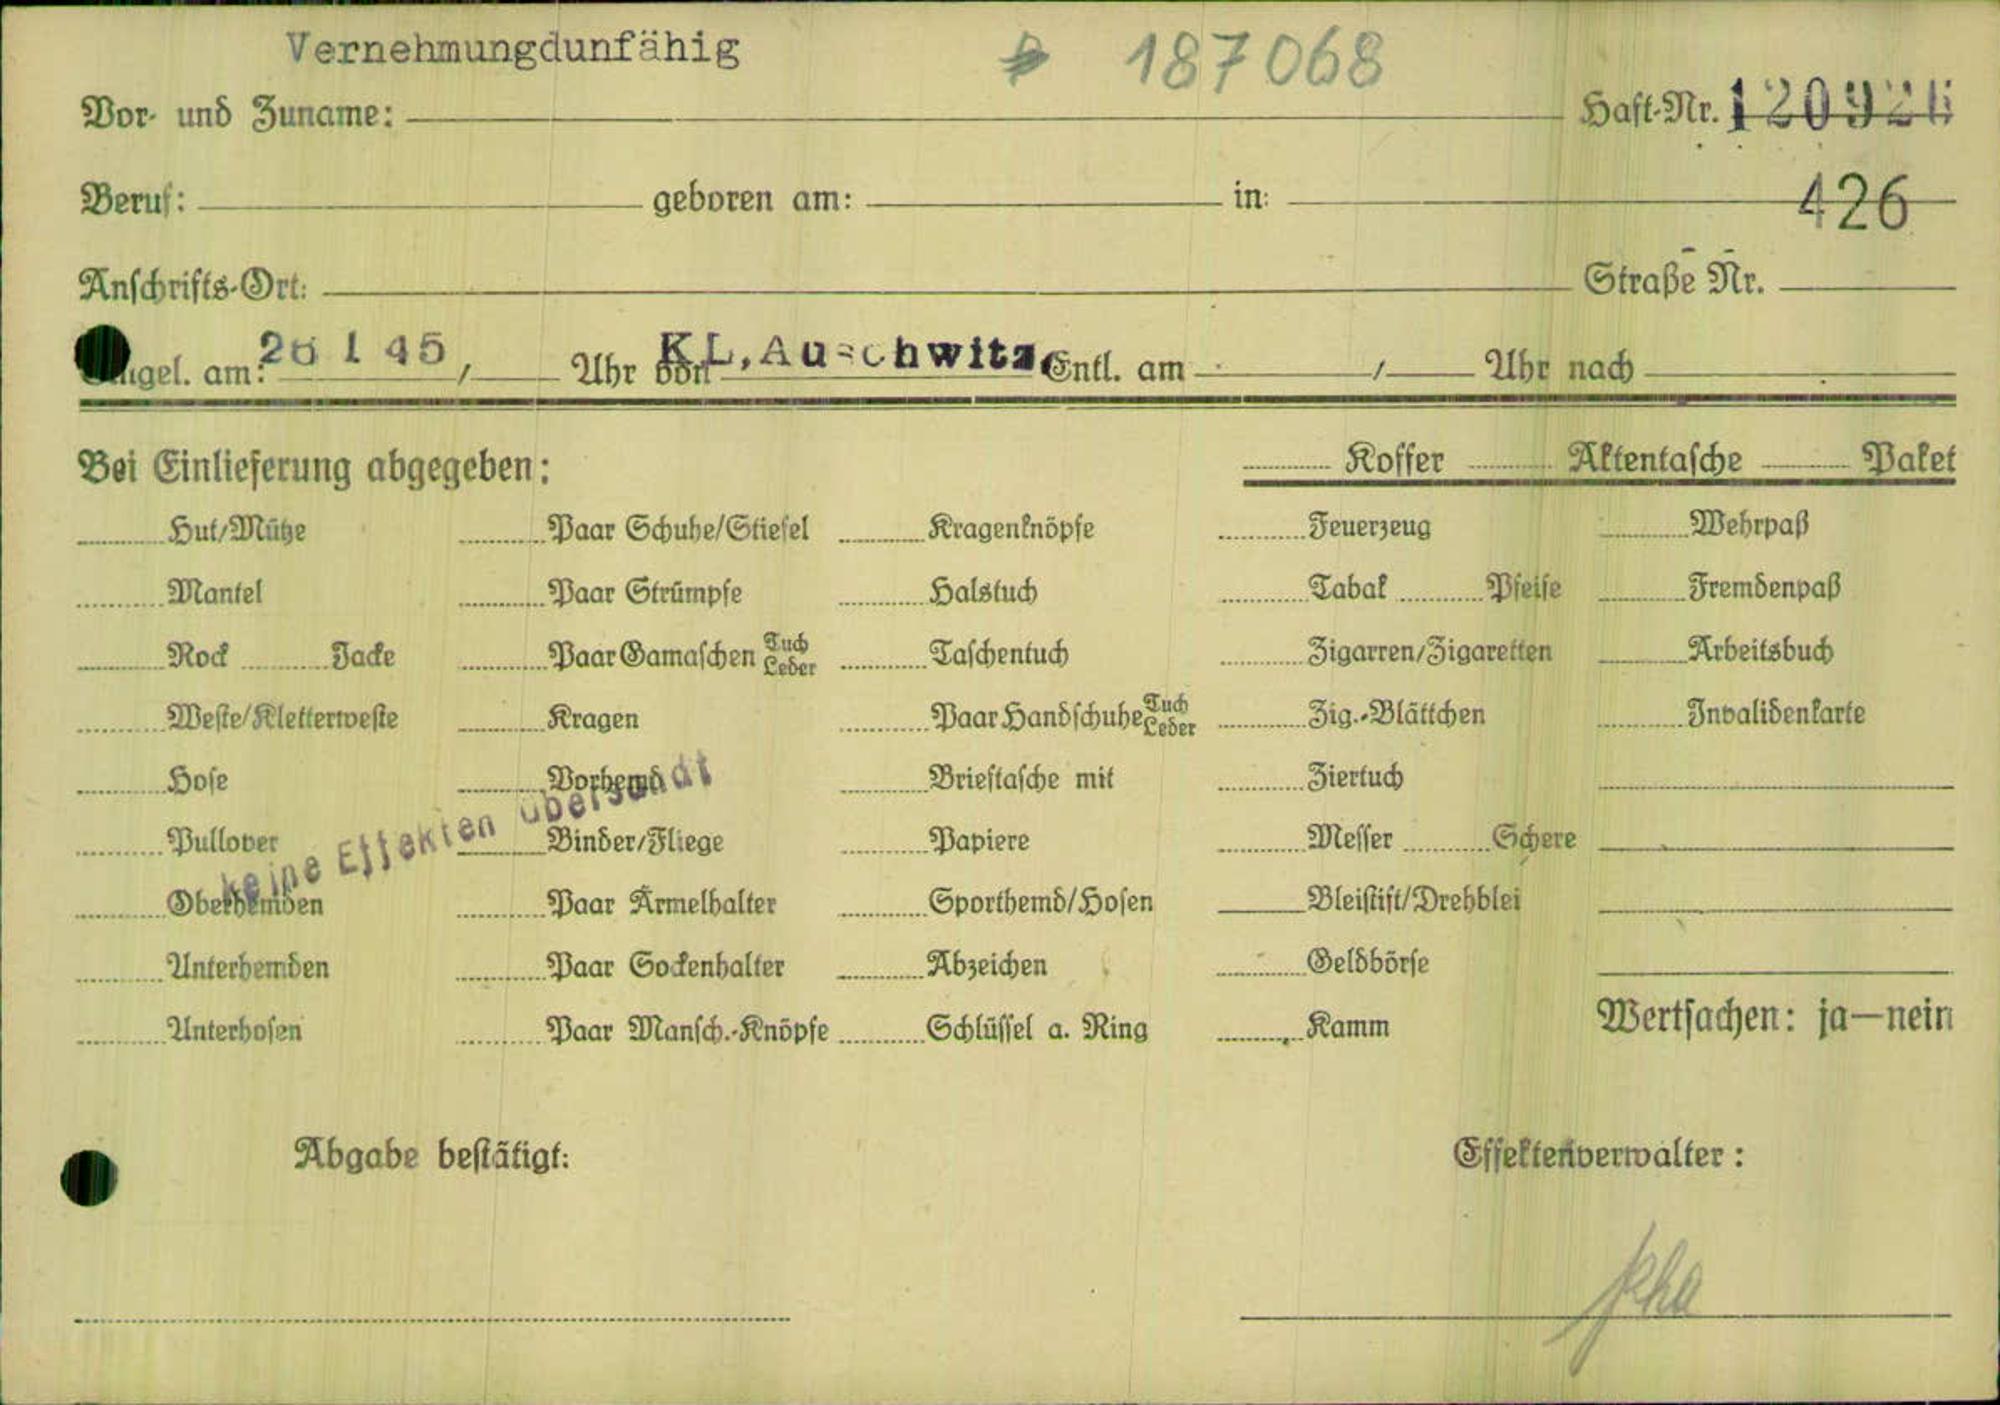 Vernehmungdunfähig 187068
Vor- und Zuname: Haft-Nr. 120926
Beruf: geboren am: in: 426
Anschrifts-Ort: Straße Nr.
Eingel. am: 26 1 45 / Uhr von KL, Auschwitz Entl. am / Uhr nach
Bei Einlieferung abgegeben: Koffer Aktentasche Paket
Hut/Mütze Paar Schuhe/Stiefel Kragenknöpfe Feuerzeug Wehrpaß
Mantel Paar Strümpfe Halstuch Tabak Pfeife Fremdenpaß
Rock Jacke Paar Gamaschen Tuch Leder Taschentuch Zigarren/Zigaretten Arbeitsbuch
Weste/Kletterweste Kragen Paar Handschuhe Tuch Leder Zig.-Blättchen Invalidenkarte
Hose Vorhemd Brieftasche mit Ziertuch
Pullover Binder/Fliege Papiere Messer Schere
keine Effekten übersandt
Oberhemden Paar Ärmelhalter Sporthemd/Hosen Bleistift/Drehblei
Unterhemden Paar Sockenhalter Abzeichen Geldbörse
Unterhosen Paar Mansch.-Knöpfe Schlüssel a. Ring Kamm Wertsachen: ja—nein
Abgabe bestätigt: Effektenverwalter: